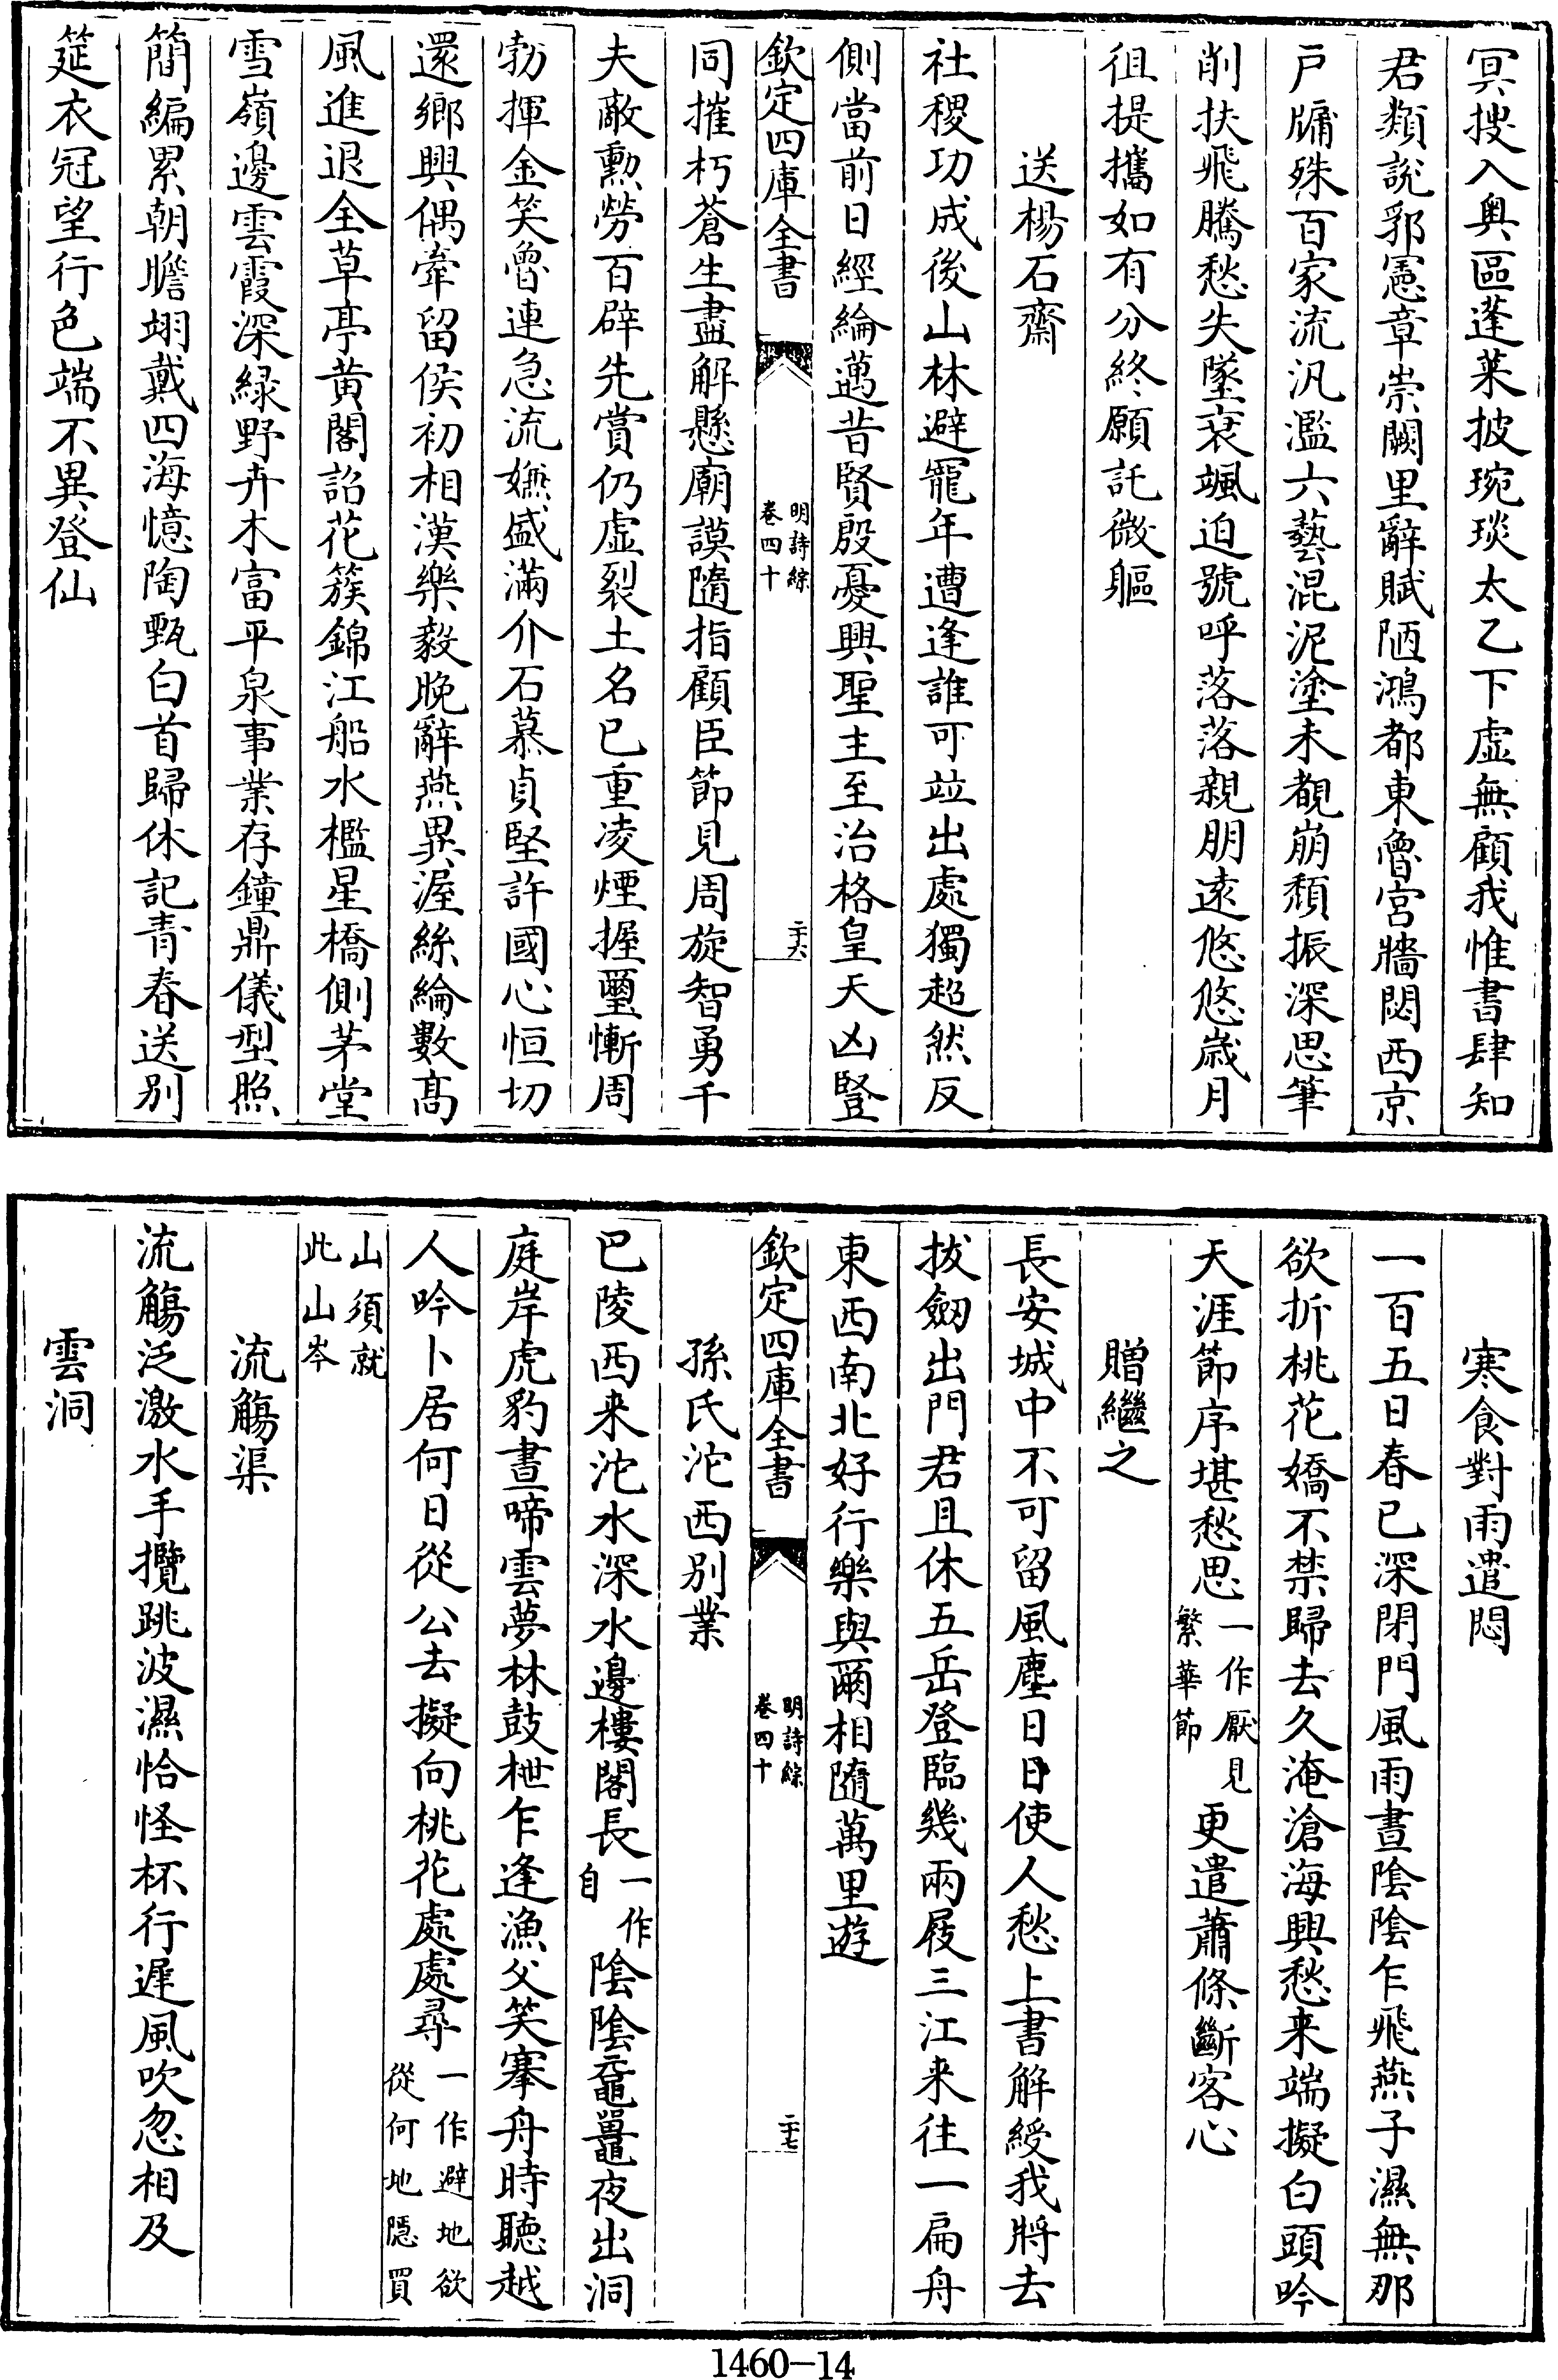 冥搜入奥區蓬萊披琬琰太乙下虚無顧我惟書肆知
君類說郛憲章崇闕里辭賦陋鴻都東魯宫牆閟西京
戸牖殊百家流汎濫六藝混泥塗未覩崩頽振深思筆
削扶飛騰愁失墜衰颯迫號呼落落親朋逺悠悠歳月
徂提攜如有分終願託微軀
送楊石齋
社稷功成後山林避寵年遭逢誰可竝出處獨超然反
側當前日經綸邁昔賢殷憂興聖主至治格皇天凶豎
欽定四庫全書
明詩綜
卷四十
二十六
同摧朽蒼生盡解懸廟謨隨指顧臣節見周旋智勇千
夫敵勲勞百辟先賞仍虚裂土名已重凌煙握璽慚周
勃揮金笑魯連急流嫌盛滿介石慕貞堅許國心恒切
還鄉興偶牽留侯初相漢樂毅晚辭燕異渥絲綸數髙
風進退全草亭黄閣詔花簇錦江船水檻星橋側茅堂
雪嶺邊雲霞深緑野卉木富平泉事業存鐘鼎儀型照
簡編累朝瞻翊戴四海憶陶甄白首歸休記青春送別
筵衣冠望行色端不異登仙
寒食對雨遣悶
一百五日春已深閉門風雨晝陰陰乍飛燕子濕無那
欲折桃花嬌不禁歸去久淹滄海興愁来端擬白頭吟
天涯節序堪愁思一作厭見繁華節更遣蕭條斷客心
贈繼之
長安城中不可留風塵日日使人愁上書解綬我將去
拔劒出門君且休五岳登臨幾兩屐三江来往一扁舟
東西南北好行樂與爾相隨萬里遊
欽定四庫全書
明詩綜
卷四十
二十七
孫氏沱西別業
巴陵西来沱水深水邊樓閣長一作自陰陰黿鼉夜出洞
庭岸虎豹晝啼雲夢林鼓枻乍逢漁父笑搴舟時聽越
人吟卜居何日從公去擬向桃花處處尋一作避地欲從何地隱買
山須就此山岑
流觴渠
流觴泛激水手攬跳波濕恰怪杯行遲風吹忽相及
雲洞
1460-14